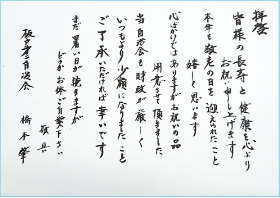 拝慶
皆様の長寿と健康を心より
お祝い申し上げます
本年も敬老の日を迎えられたこと
嬉しく思います
心ばかりではありますがお祝いの品
用意させて頂きました
当自治会も財政が厳しく
いつもより少額になりましたこと
ご了承いただければ幸いです
まだ暑い日が続きますが
どうかお体ご自愛下さい
敬具
自治会
橋本肇